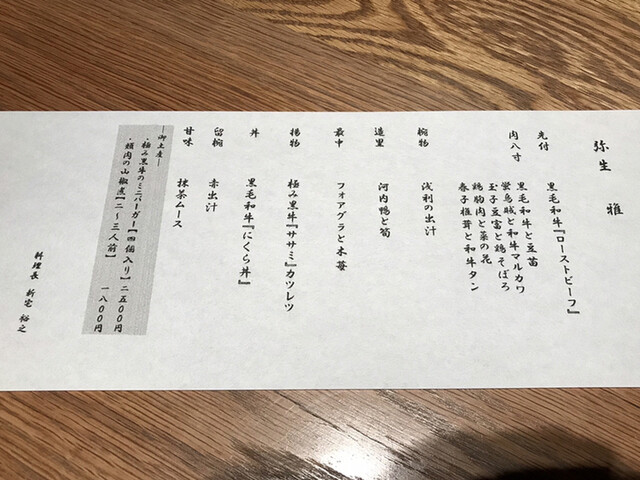 弥生 雅
先付 黒毛和牛『ローストビーフ』
肉八寸 黒毛和牛と豆苗
蛍烏賊と和牛マルカワ
玉子豆富と鶏そぼろ
鶏胸肉と菜の花
春子椎茸と和牛タン
椀物 浅利の出汁
造里 河内鴨と筍
最中 フォアグラと木苺
揚物 極み黒牛『ササミ』カツレツ
丼 黒毛和牛『にくら丼』
留椀 赤出汁
甘味 抹茶ムース
―御土産―
・極み黒牛のミニバーガー【四個入り】二五〇〇円
・頬肉の山椒煮【二～三人前】 一八〇〇円
料理長 新宅 裕之